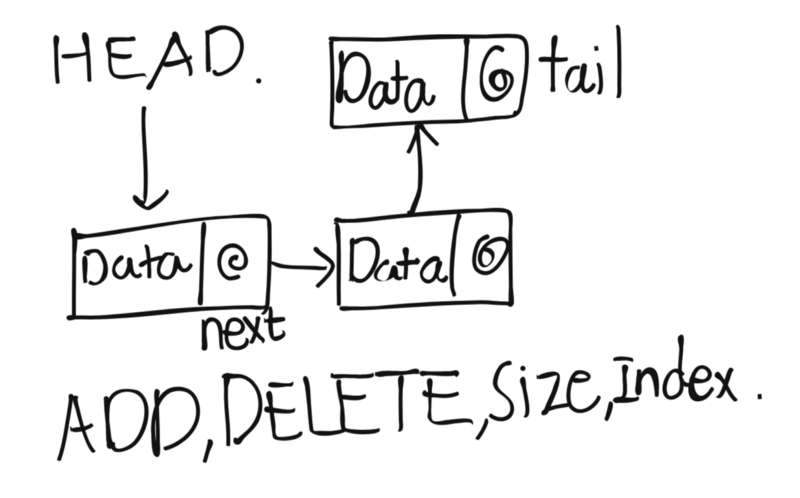 HEAD.
Data tail
Data
next
Data
ADD, DELETE, Size, Index.